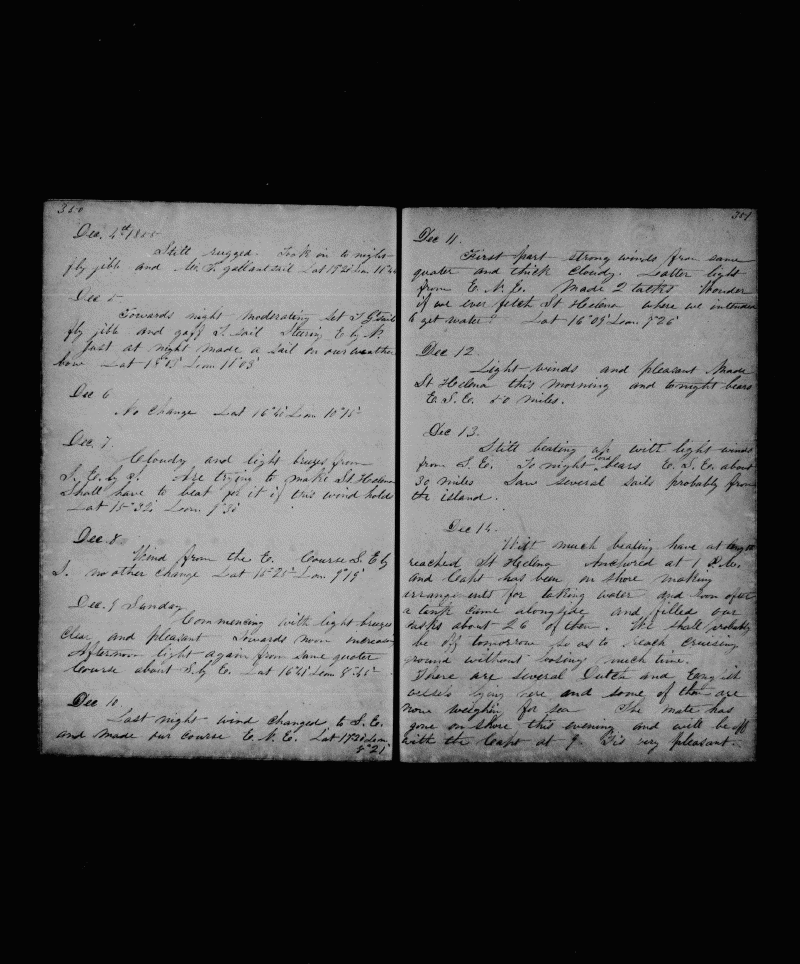 350
Dec. 4th 1855
Still rugged. Took in to night
fly jibb and M. T. gallant sail Lat 19°
Dec 5
Towards night moderating Set T. G. sail
fly jibb and gaff T. sail Steering E by N.
Just at night made a sail on our weather
bow Lat Lon 11°03'
Dec 6
No change Lat 16° Lon 10°15'
Dec. 7.
Cloudy and light breezes from
S. E. by E. Are trying to make St Helena
Shall have to beat for it if this wind holds
Lat 15°32' Lon 9°
Dec. 8.
Wind from the E. Course S. E by
S. no other change Lat 15°25' Lon 9°19'
Dec. 9 Sunday
Commencing with light breezes
clear and pleasant Towards noon increasing
Afternoon light again from same quater
Course about S. by E. Lat 16°41' Lon 8°
Dec 10.
Last night wind changed to S. E.
and made our course E. N. E. Lat 17° Lon
8°21'
351
Dec 11.
First part strong winds from same
quater and thick cloudy. Latter light
from E. N. E. Made 2 tacks Wonder
if we ever fetch St Helena where we intended
to get water? Lat 16°09' Lon 7°26'
Dec 12
Light winds and pleasant Made
St Helena this morning and tonight bears
E. S. E. 50 miles.
Dec 13.
Still beating up with light winds
from S. E. To night land bears E. S. E. about
30 miles Saw several sails probably from
the island.
Dec 14.
With much beating have at length
reached St Helena Anchored at 1 P. M.
and Capt has been on shore making
arrangements for taking water and soon after
a tank came alongside and filled our
casks about 26 of them. We shall probably
be off tomorrow so as to reach cruising
ground without losing much time.
There are several Dutch and English
vessels lying here and some of them are
now weighing for sea The mate has
gone on shore this evening and will be off
with the Capt at 9. Tis very pleasant.